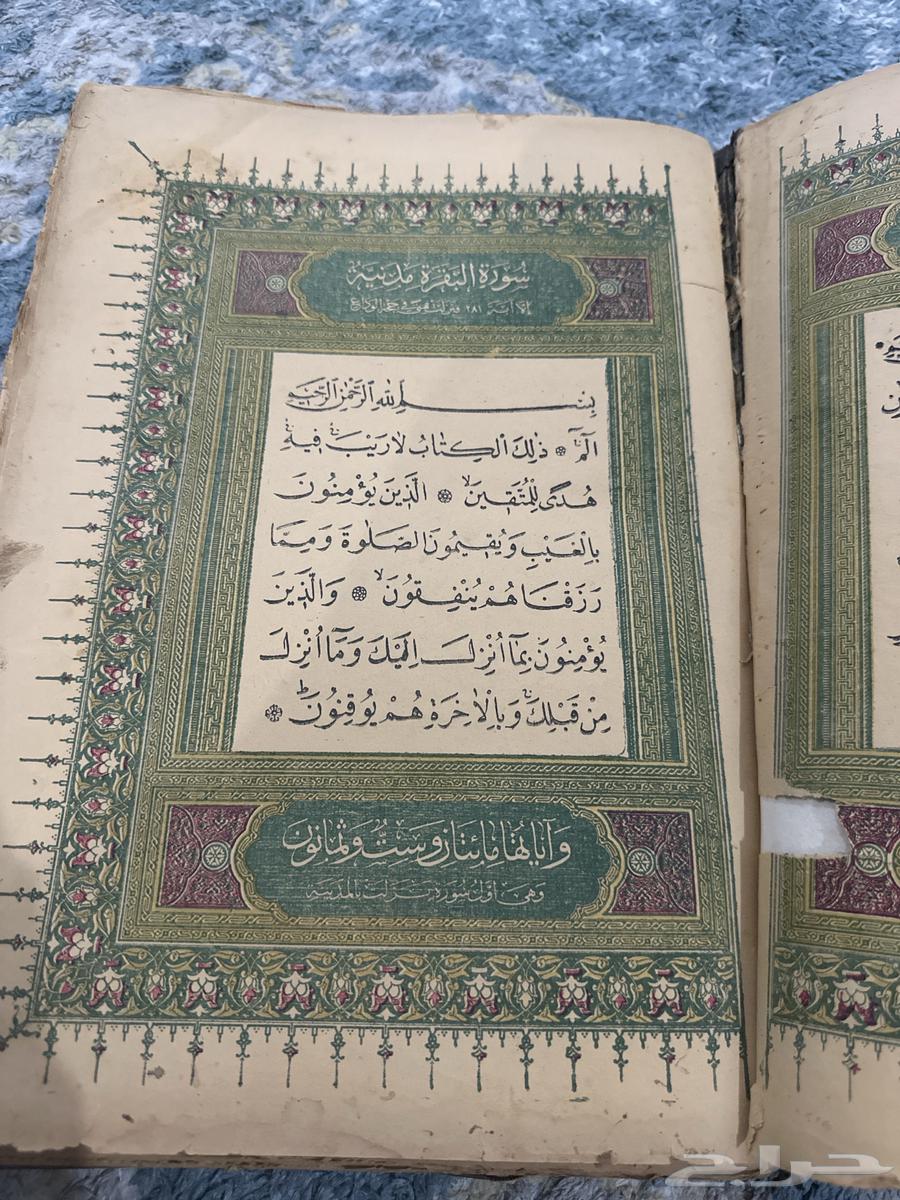 سُورَةُ الْبَقَرَةِ مَدَنِيَّةٌ
إلا آية ٢٨١ فنزلت بمنى في حجة الوداع
بِسْمِ اللهِ الرَّحْمٰنِ الرَّحِيمِ
الٓمٓ ۞ ذٰلِكَ الْكِتَابُ لَا رَيْبَ فِيهِ
هُدًى لِلْمُتَّقِينَ ۞ الَّذِينَ يُؤْمِنُونَ
بِالْغَيْبِ وَيُقِيمُونَ الصَّلٰوةَ وَمِمَّا
رَزَقْنَاهُمْ يُنْفِقُونَ ۞ وَالَّذِينَ
يُؤْمِنُونَ بِمَٓا اُنْزِلَ اِلَيْكَ وَمَٓا اُنْزِلَ
مِنْ قَبْلِكَ وَبِالْاٰخِرَةِ هُمْ يُوقِنُونَ ۞
وَآيَاتُهَا مِائَتَانِ وَسِتٌّ وَثَمَانُونَ
وهي أول سورة نزلت بالمدينة
حراج